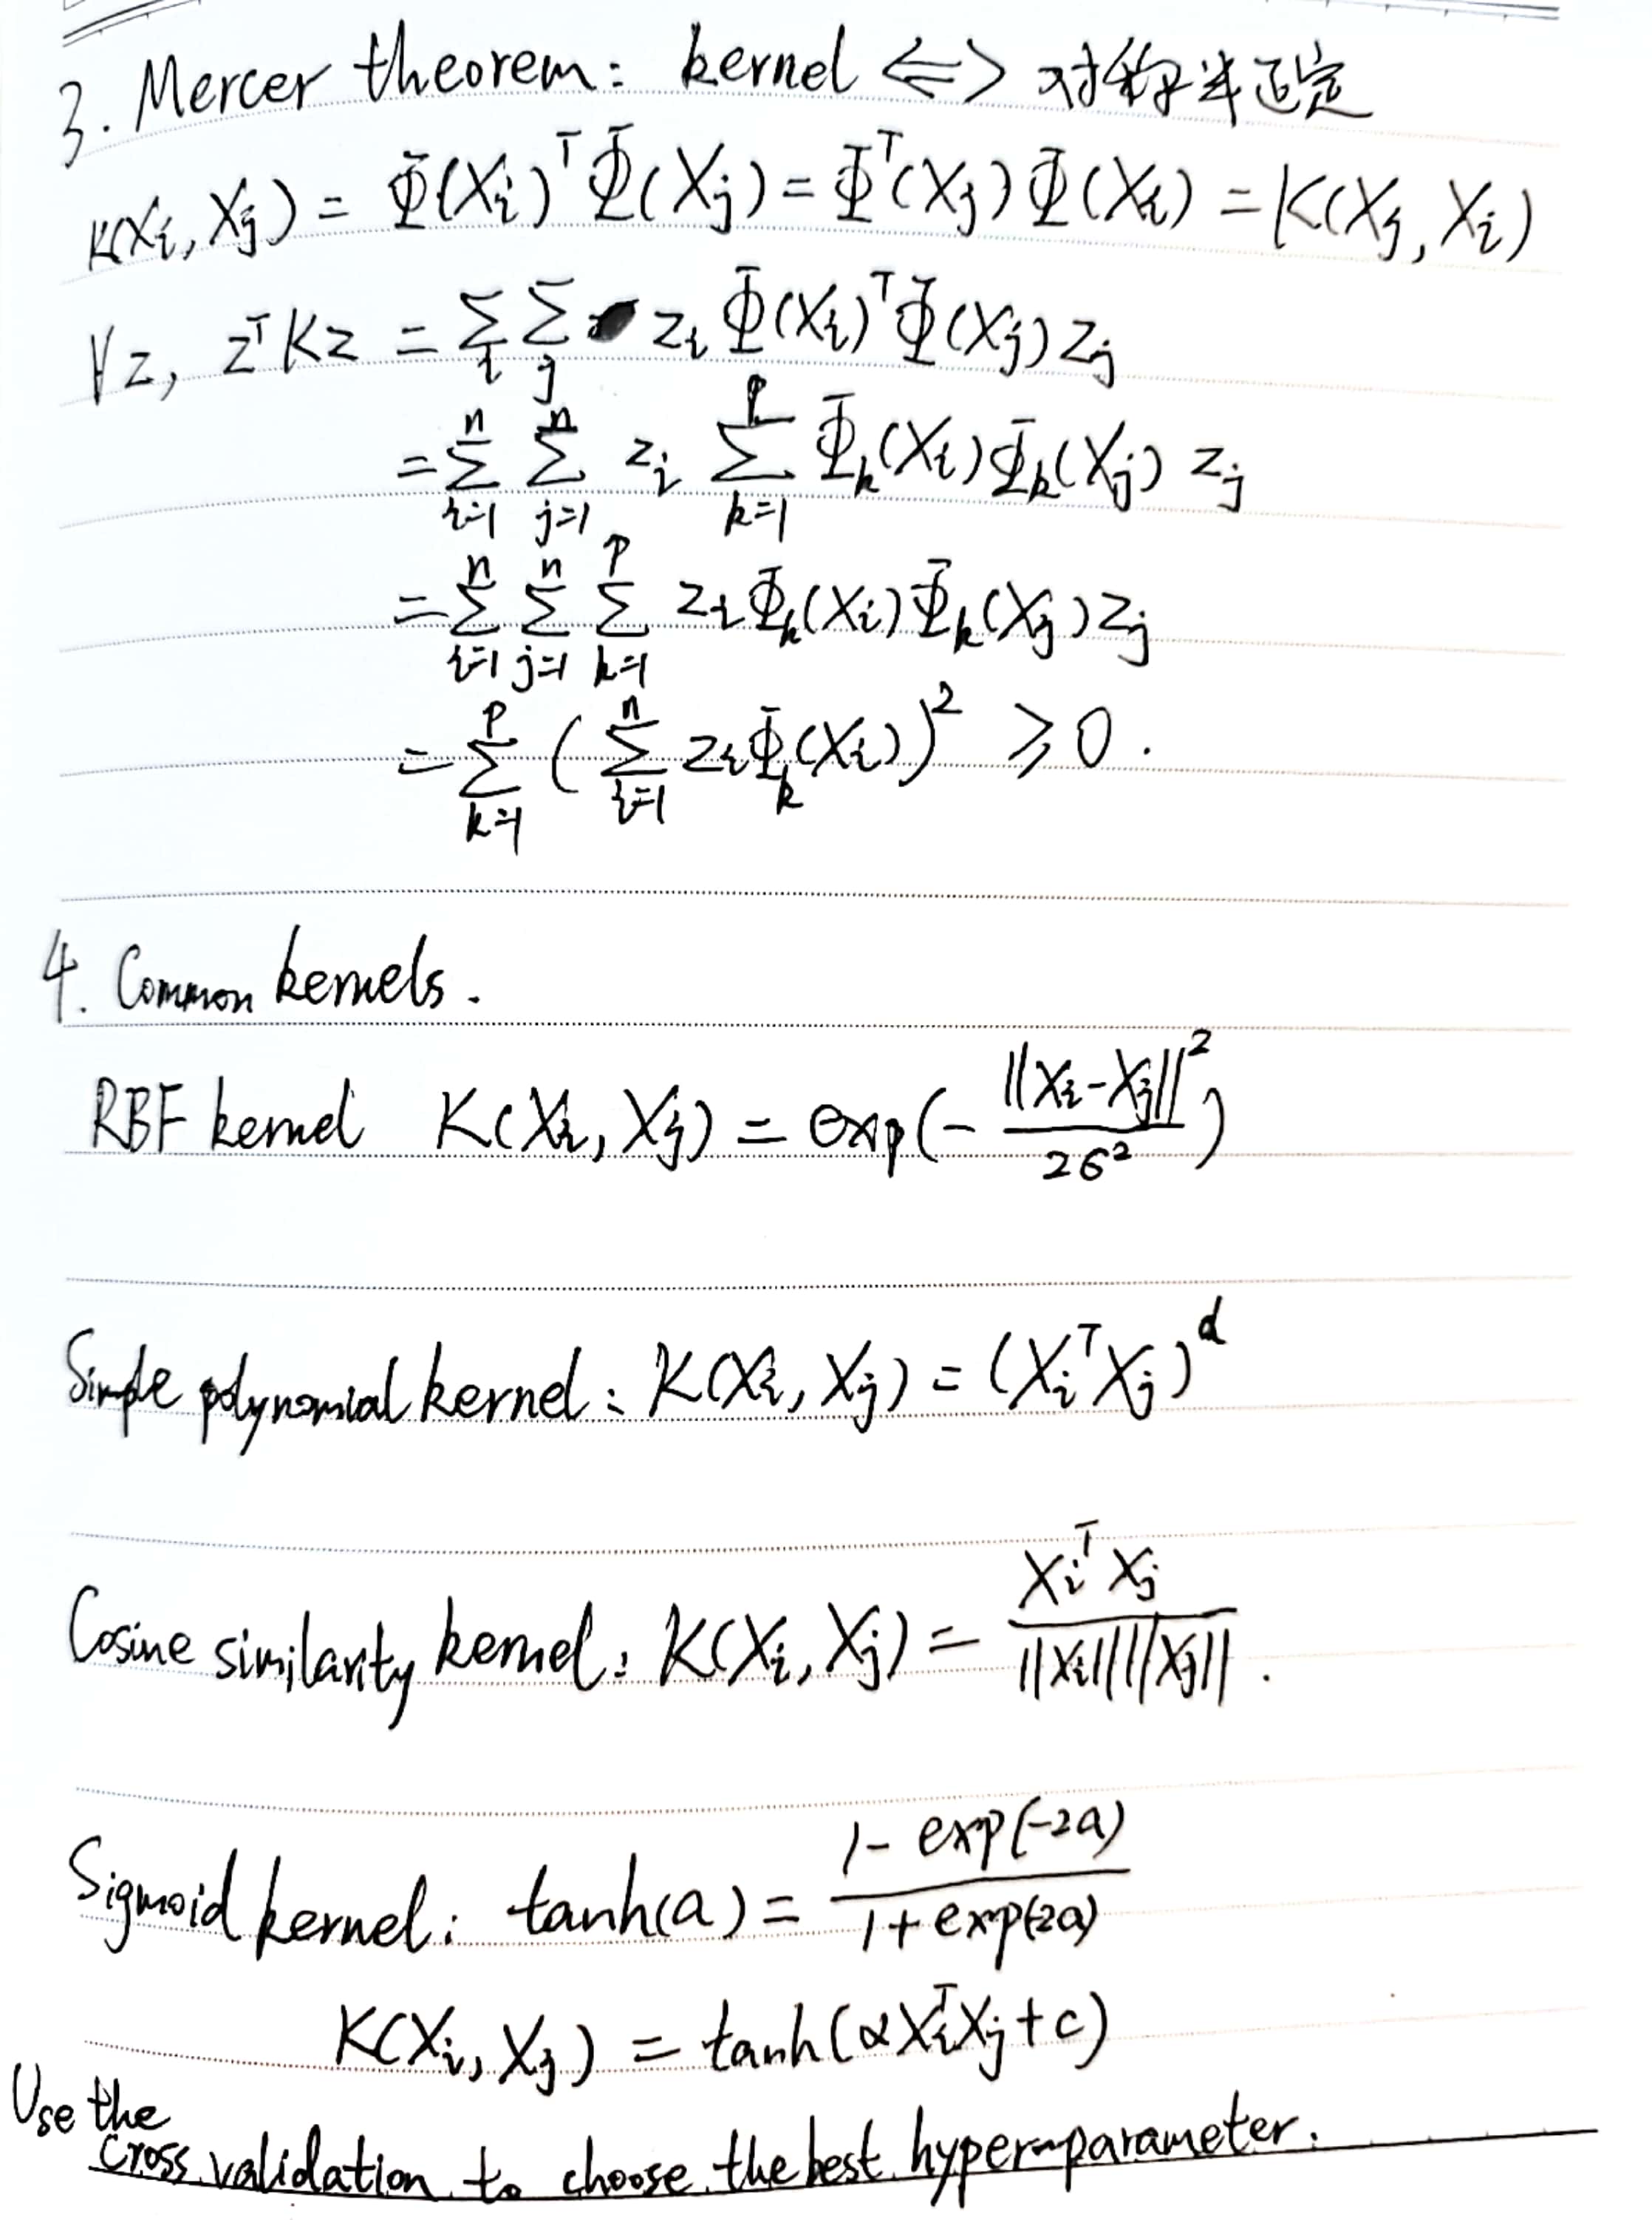 3. Mercer theorem: kernel <=> 对称半正定
K(Xi, Xj) = Φ(Xi)ᵀΦ(Xj) = Φᵀ(Xj)Φ(Xi) = K(Xj, Xi)
∀z, zᵀKz = ∑_i ∑_j zi Φ(Xi)ᵀΦ(Xj) zj
= ∑_{i=1}^n ∑_{j=1}^n zi ∑_{k=1}^p Φk(Xi)Φk(Xj) zj
= ∑_{i=1}^n ∑_{j=1}^n ∑_{k=1}^p zi Φk(Xi)Φk(Xj) zj
= ∑_{k=1}^p (∑_{i=1}^n zi Φk(Xi))² ≥ 0.
4. Common kernels.
RBF kernel K(Xi, Xj) = exp(- ||Xi-Xj||² / 2σ²)
Simple polynomial kernel: K(Xi, Xj) = (XiᵀXj)^d
Cosine similarity kernel: K(Xi, Xj) = XiᵀXj / ||Xi|| ||Xj||.
Sigmoid kernel: tanh(a) = 1 - exp(-2a) / 1 + exp(-2a)
K(Xi, Xj) = tanh(αXiᵀXj + c)
Use the
cross validation to choose the best hyper-parameter.